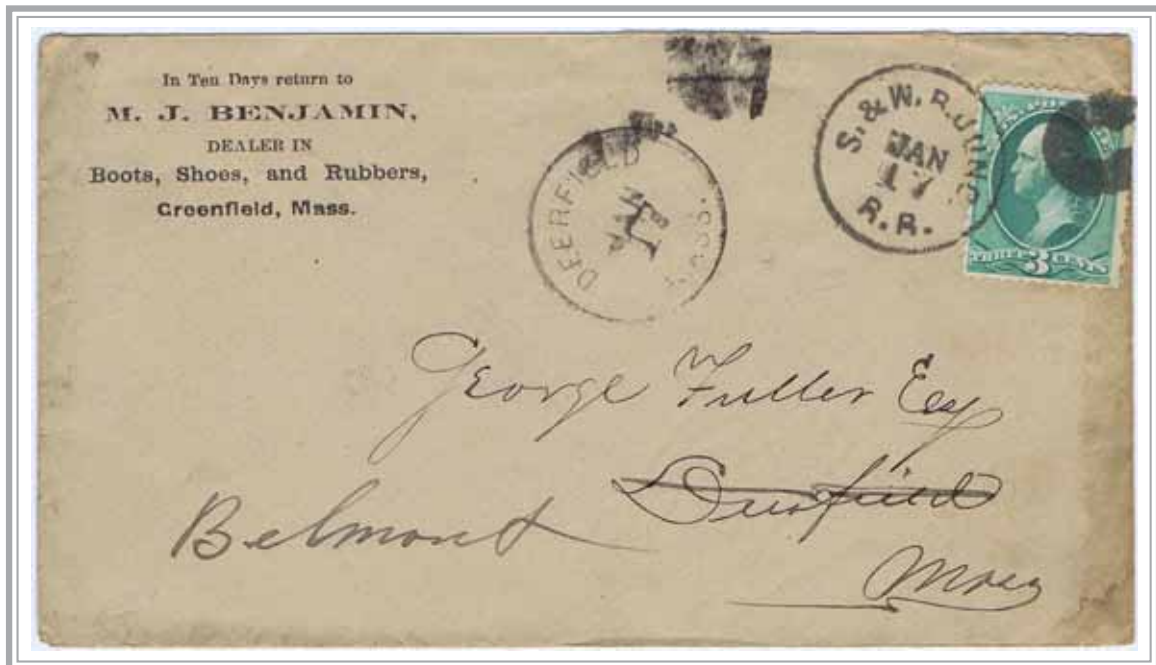 In Ten Days return to
M. J. BENJAMIN,
DEALER IN
Boots, Shoes, and Rubbers,
Greenfield, Mass.
DEERFIELD MASS.
JAN
S. & W. R. JUNC.
JAN
17
R. R.
THREE 3 CENTS
George Fuller Esq
Deerfield
Belmont
Mass